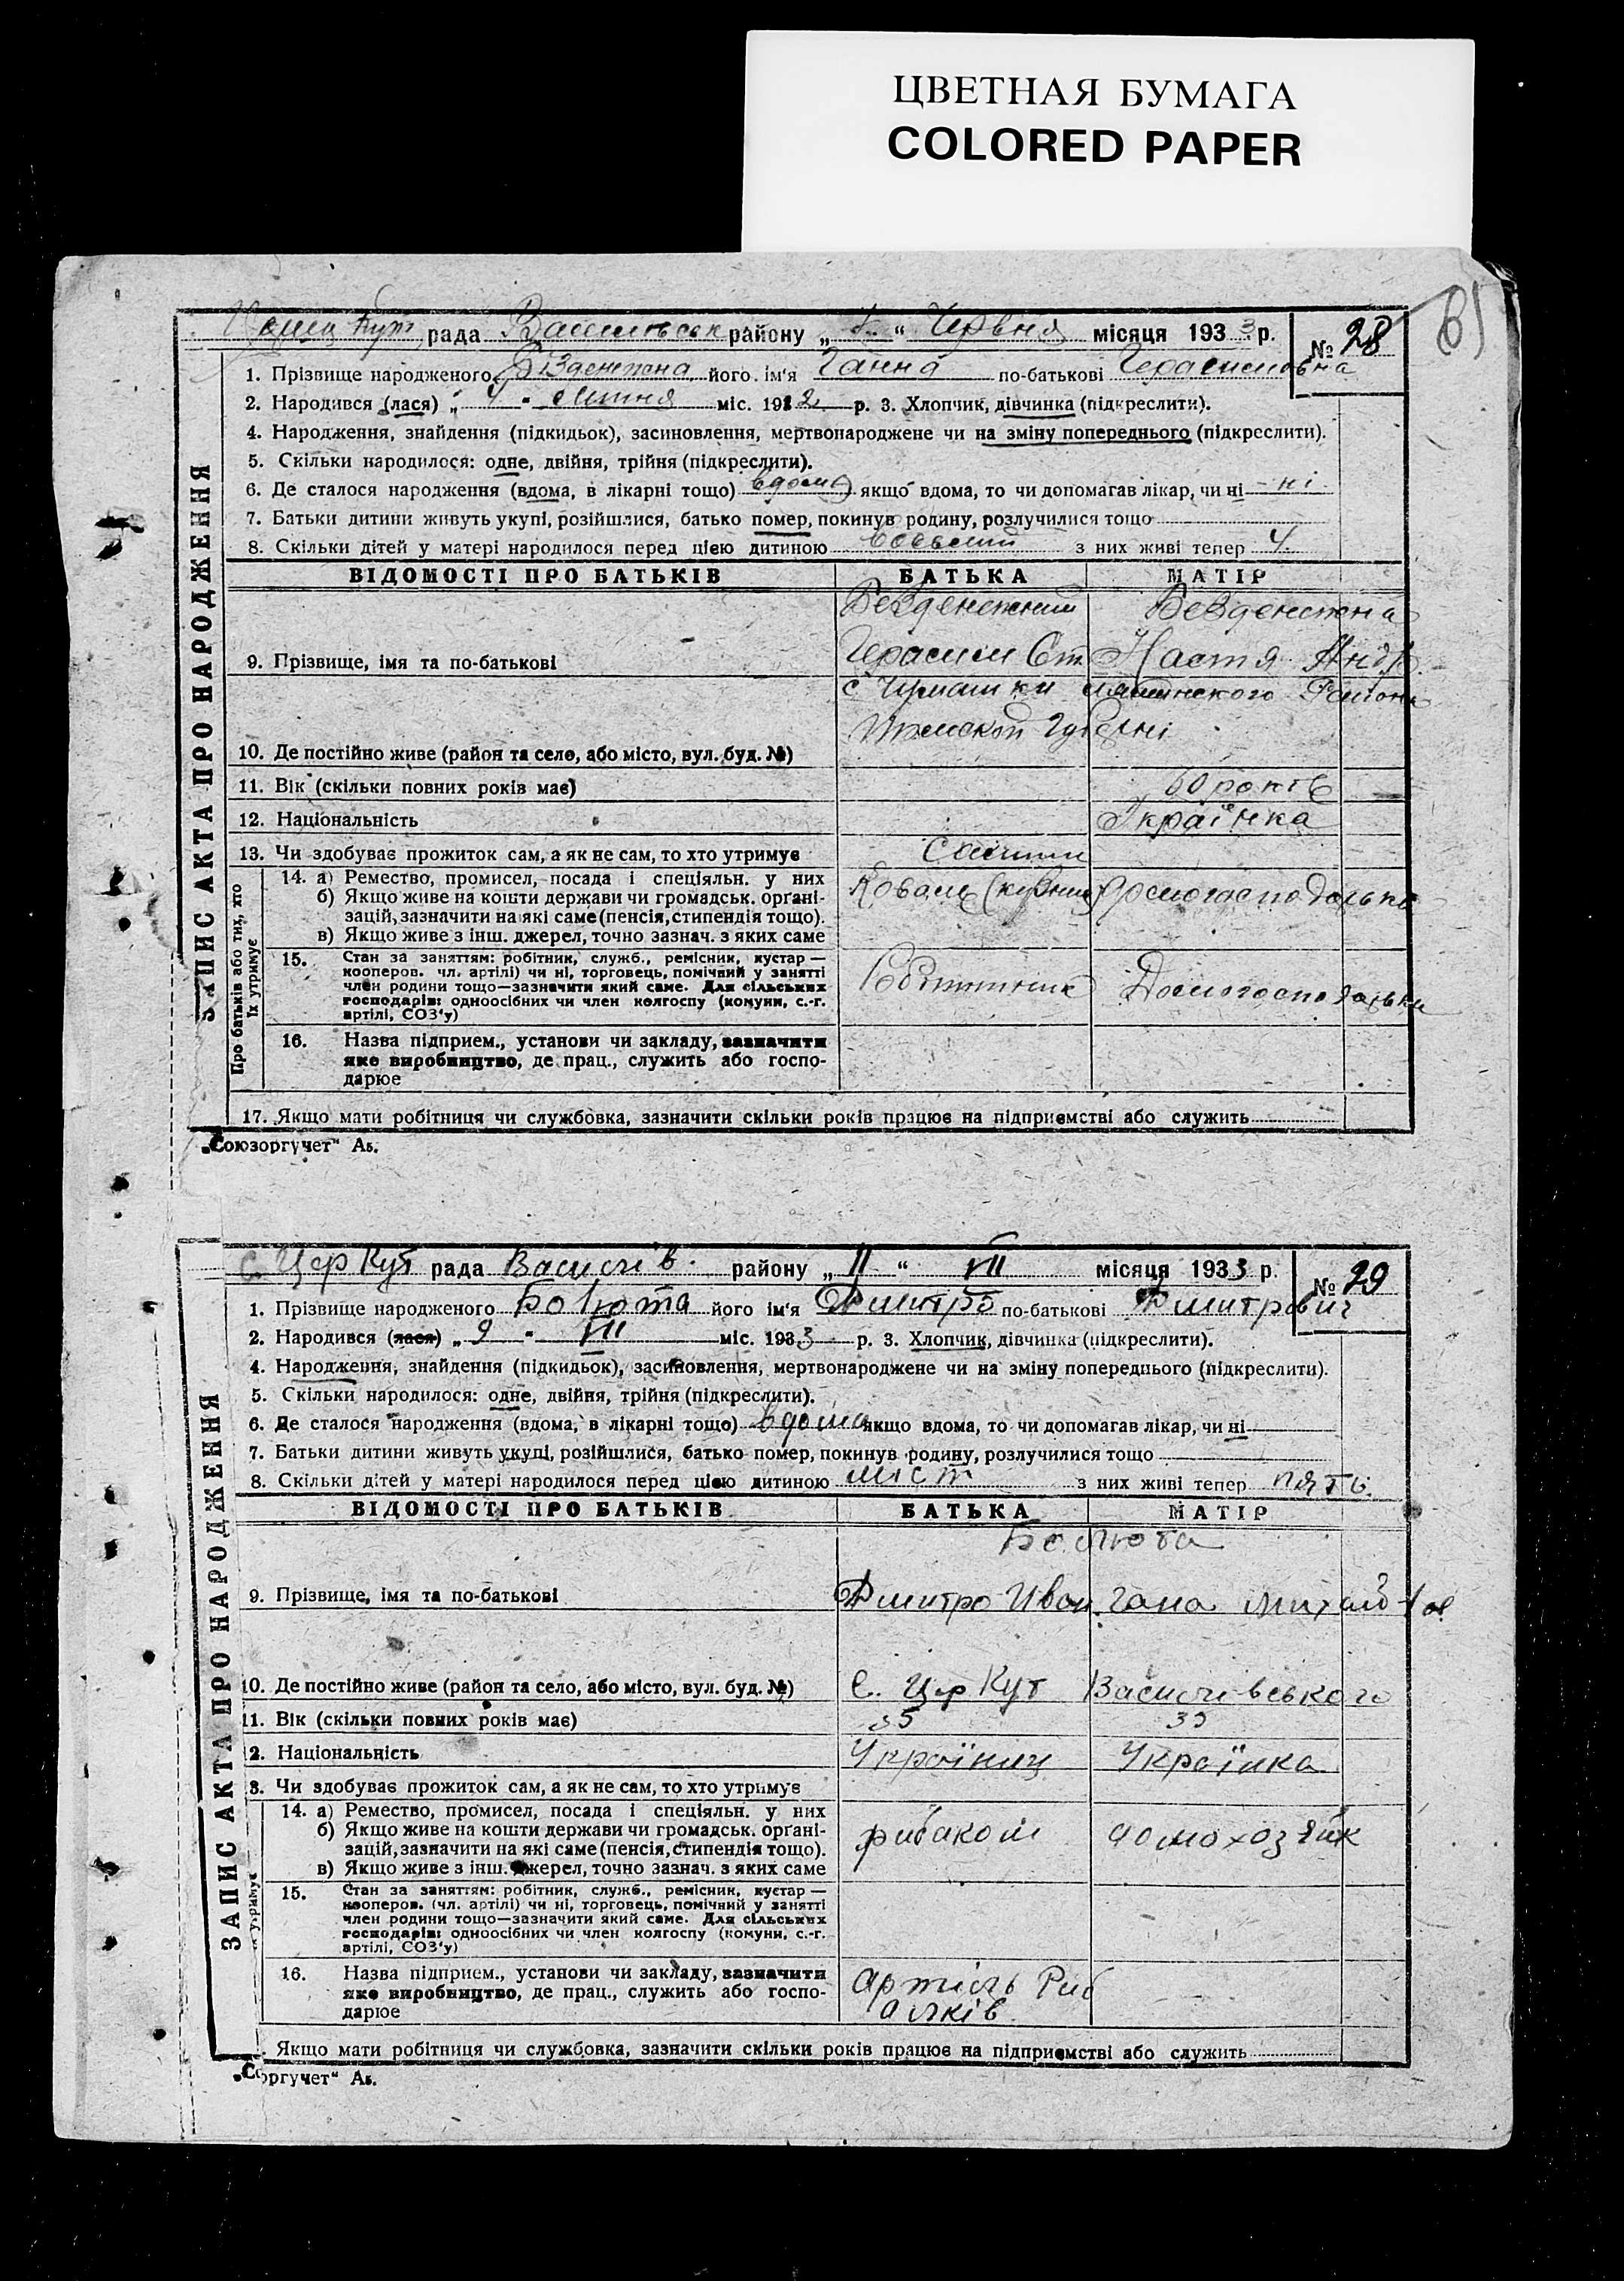 ЦВЕТНАЯ БУМАГА
COLORED PAPER
рада район у „ “ Червня місяця 1933 р. № 28
1. Прізвище народженого його ім'я Ганна по-батькові Герасимовна
2. Народився (лася) „ 4 “ міс. 1932 р. 3. Хлопчик, дівчинка (підкреслити).
4. Народження, знайдення (підкидьок), засиновлення, мертвонароджене чи на зміну попереднього (підкреслити).
5. Скільки народилося: одне, двійня, трійня (підкреслити).
6. Де сталося народження (вдома, в лікарні тощо) вдома якщо вдома, то чи допомагав лікар, чи ні ні
7. Батьки дитини живуть укупі, розійшлися, батько помер, покинув родину, розлучилися тощо
8. Скільки дітей у матері народилося перед цією дитиною з них живі тепер 4.
ВІДОМОСТІ ПРО БАТЬКІВ БАТЬКА МАТІР
9. Прізвище, імя та по-батькові Герасим Ст. Настя Андр.
10. Де постійно живе (район та село, або місто, вул. буд. №)
11. Вік (скільки повних років має) 60 років
12. Національність Українка
13. Чи здобуває прожиток сам, а як не сам, то хто утримує
14. а) Ремество, промисел, посада і спеціяльн. у них Коваль
б) Якщо живе на кошти держави чи громадськ. органі-
зацій, зазначити на які саме (пенсія, стипендія тощо).
в) Якщо живе з інш. джерел, точно зазнач. з яких саме
15. Стан за заняттям: робітник, служб., ремісник, кустар —
кооперов. чл. артілі) чи ні, торговець, помічний у занятті
член родини тощо—зазначити який саме. Для сільських
господарів: одноосібних чи член колгоспу (комуни, с.-г.
артілі, СОЗ'у)
16. Назва підприєм., установи чи закладу, зазначити
яке виробництво, де прац., служить або госпо-
дарює
17. Якщо мати робітниця чи службовка, зазначити скільки років працює на підприємстві або служить
ЗАПИС АКТА ПРО НАРОДЖЕННЯ
Про батьків або тих, хто
їх утримує
„Союзоргучет“ Аь.
с. Цер Кут рада Василів. району „ 11 “ VII місяця 1933 р. № 29
1. Прізвище народженого його ім'я Дмитро по-батькові Дмитрович
2. Народився (лася) „ 9 “ VII міс. 1933 р. 3. Хлопчик, дівчинка (підкреслити).
4. Народження, знайдення (підкидьок), засиновлення, мертвонароджене чи на зміну попереднього (підкреслити).
5. Скільки народилося: одне, двійня, трійня (підкреслити).
6. Де сталося народження (вдома, в лікарні тощо) вдома якщо вдома, то чи допомагав лікар, чи ні
7. Батьки дитини живуть укупі, розійшлися, батько помер, покинув родину, розлучилися тощо
8. Скільки дітей у матері народилося перед цією дитиною шіст з них живі тепер пять.
ВІДОМОСТІ ПРО БАТЬКІВ БАТЬКА МАТІР
9. Прізвище, імя та по-батькові Дмитро Иван. Гана
10. Де постійно живе (район та село, або місто, вул. буд. №) с. Цер Кут Василівського
11. Вік (скільки повних років має) 35
12. Національність Українец Українка
3. Чи здобуває прожиток сам, а як не сам, то хто утримує
14. а) Ремество, промисел, посада і спеціяльн. у них
б) Якщо живе на кошти держави чи громадськ. органі- рибаком домохозяйк
зацій, зазначити на які саме (пенсія, стипендія тощо).
в) Якщо живе з інш. джерел, точно зазнач. з яких саме
15. Стан за заняттям: робітник, служб., ремісник, кустар —
кооперов. (чл. артілі) чи ні, торговець, помічний у занятті
член родини тощо—зазначити який саме. Для сільських
господарів: одноосібних чи член колгоспу (комуни, с.-г.
артілі, СОЗ'у)
16. Назва підприєм., установи чи закладу, зазначити Артіль Риб
яке виробництво, де прац., служить або госпо- алків
дарює
Якщо мати робітниця чи службовка, зазначити скільки років працює на підприємстві або служить
ЗАПИС АКТА ПРО НАРОДЖЕННЯ
„Соргучет“ Аь.